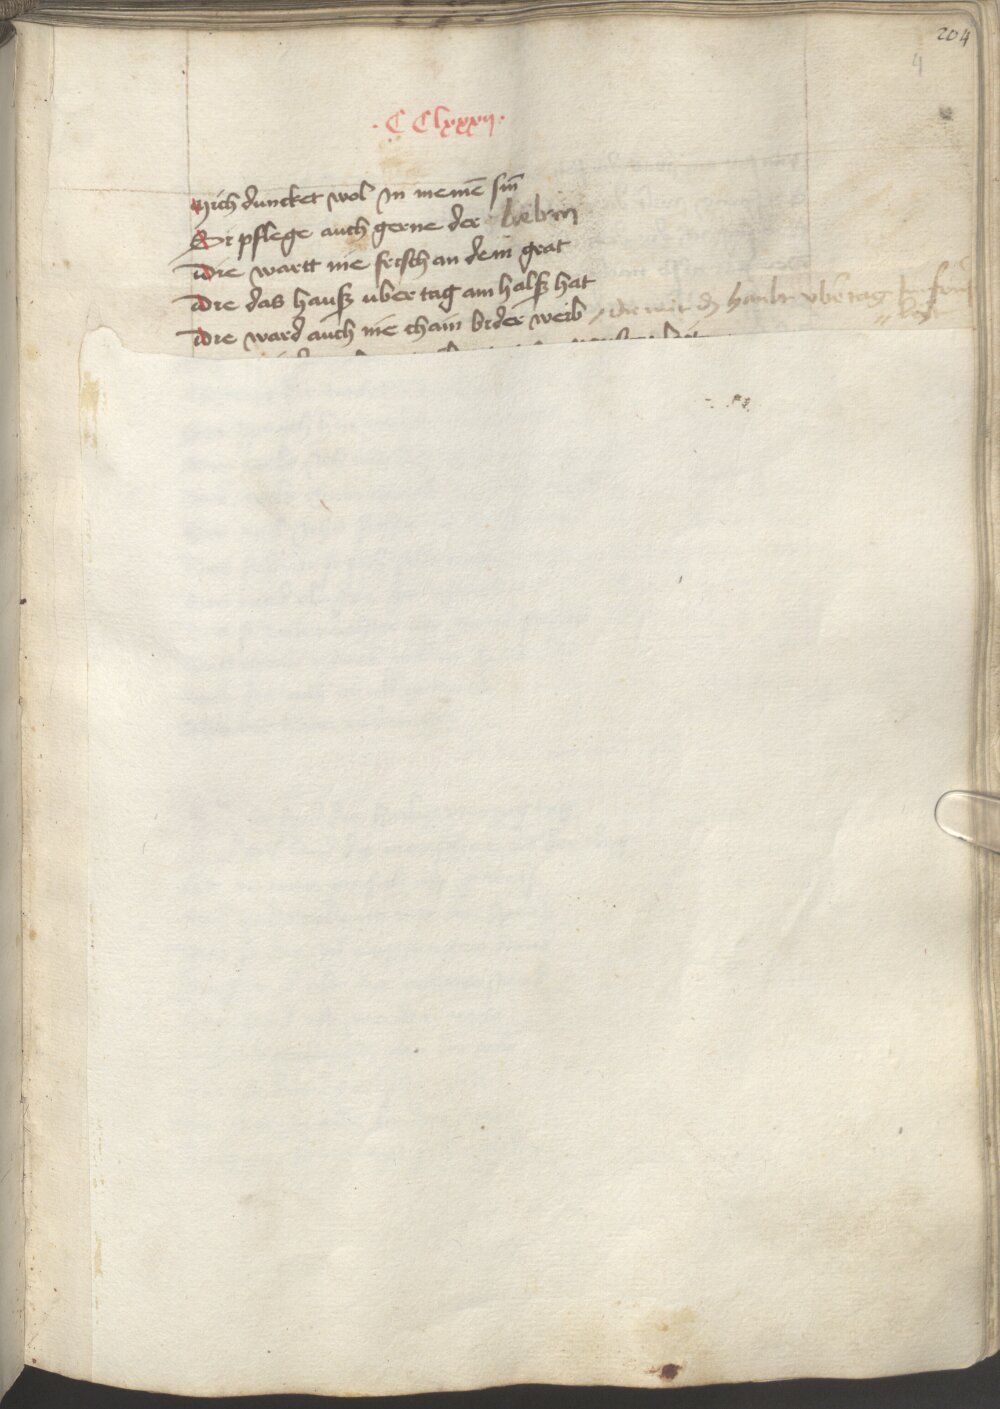 204
4
· CClxxxij ·
Mich duncket wol In meinē sin̄
Er pflege auch gerne der
Die wartt nie frisch an dem grat
Die das hauß uber tag am halß hat
Die ward auch nie chain bider weib
die mit haubt vber tag